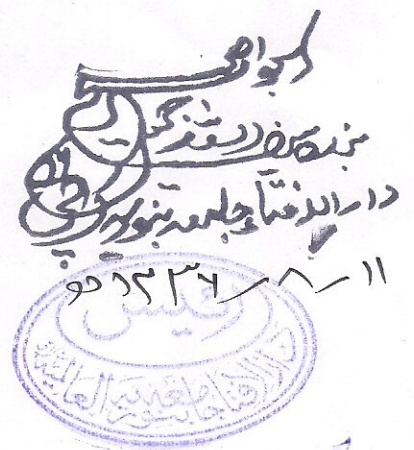 الجواب صحیح
بندہ
دارالافتاء جامعہ بنوریہ کراچی
۱۱-۸-۱۴۳۶ھ
رئیس
دار الافتاء جامعہ بنوریہ العالمیہ